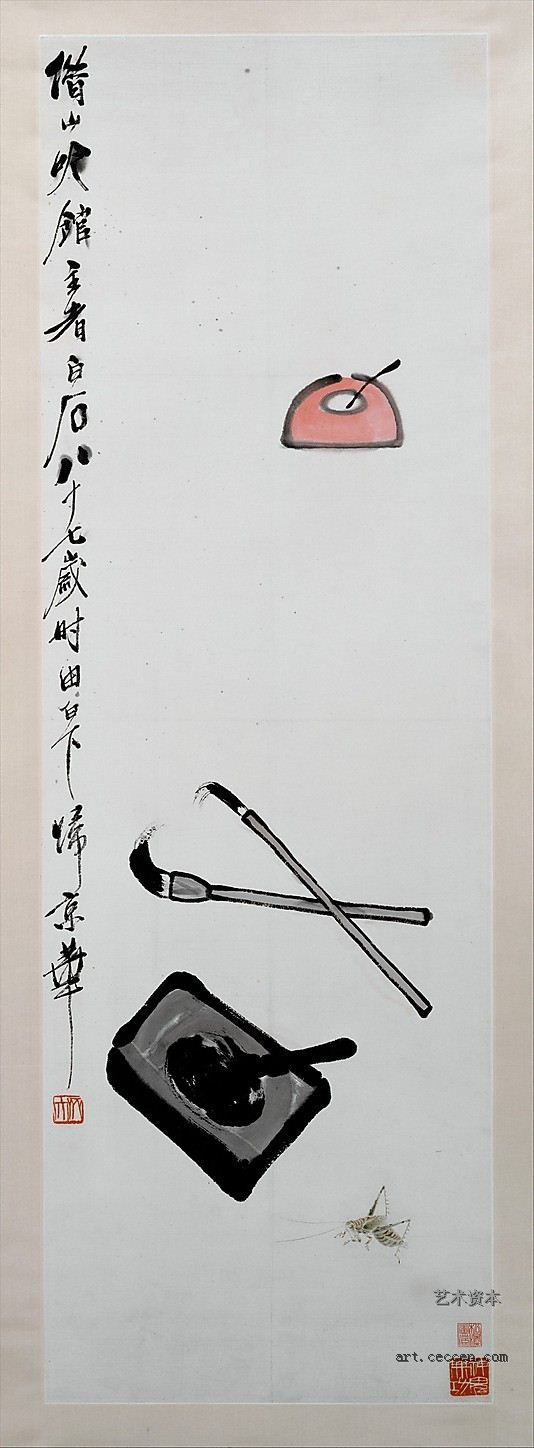 借山吟館主者白石八十七歲时由白下歸京華
艺术资本
art.ceccen.com